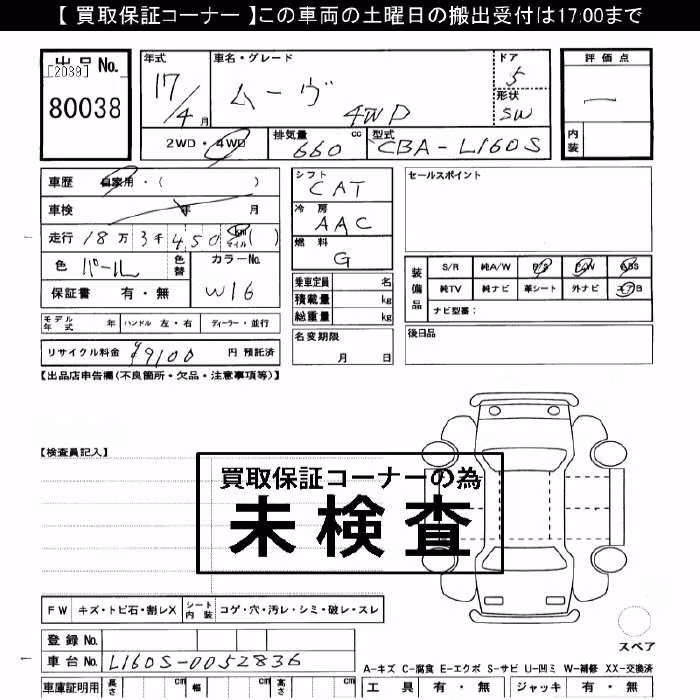 【 買取保証コーナー 】この車両の土曜日の搬出受付は17:00まで
出品 No.
[2039]
80038
年式
17/4月
車名・グレード
ムーヴ
4WD
ドア
5
形状
SW
評価点
内装
2WD・4WD
排気量
660 cc
型式
CBA-L160S
車歴 自家用・( )
車検 年 月
走行 18万3千450 km マイル ( )
色 パール
色替
カラーNo.
W16
保証書 有・無
シフト
CAT
冷房
AAC
燃料
G
乗車定員 名
積載量 kg
総重量 kg
セールスポイント
装備品
S/R 純A/W P/S P/W ABS
純TV 純ナビ 革シート 外ナビ エアB
ナビ型番:
モデル年式 年 ハンドル 左・右 ディーラー・並行
名変期限
月 日
後日品
リサイクル料金 ¥9100 円 預託済
【出品店申告欄(不良箇所・欠品・注意事項等)】
【検査員記入】
買取保証コーナーの為
未検査
FW キズ・トビ石・割レX シート内装 コゲ・穴・汚レ・シミ・破レ・スレ
スペア
登録 No.
車台 No. L160S-0052836
A-キズ C-腐食 E-エクボ S-サビ U-凹ミ W-補修 XX-交換済
車庫証明用 長さ cm 幅 cm 高さ cm
工具 有・無 ジャッキ 有・無